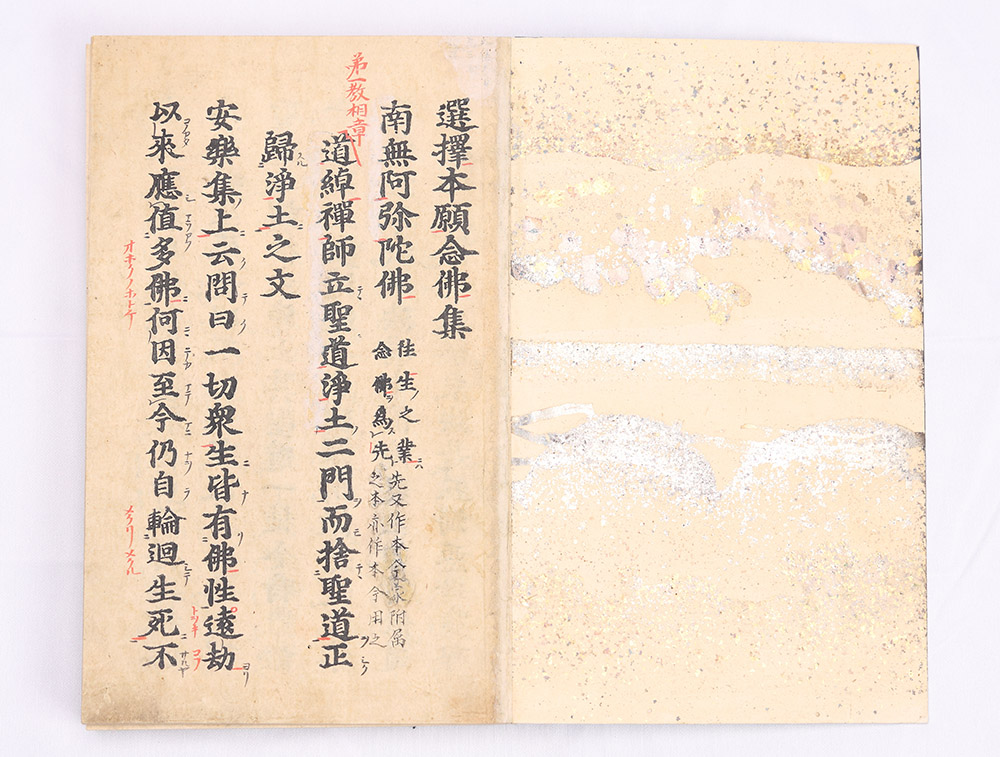 選擇本願念佛集
南無阿弥陀佛
徃生之業
念佛爲先
先又作本今蒙附属
之本亦作本今用之
第一教相章
道綽禪師立聖道淨土二門而捨聖道正
歸淨土之文
安樂集上云問曰一切衆生皆有佛性遠劫
以來應値多佛何因至今仍自輪迴生死不
オホクノホトケ
メクリメクル